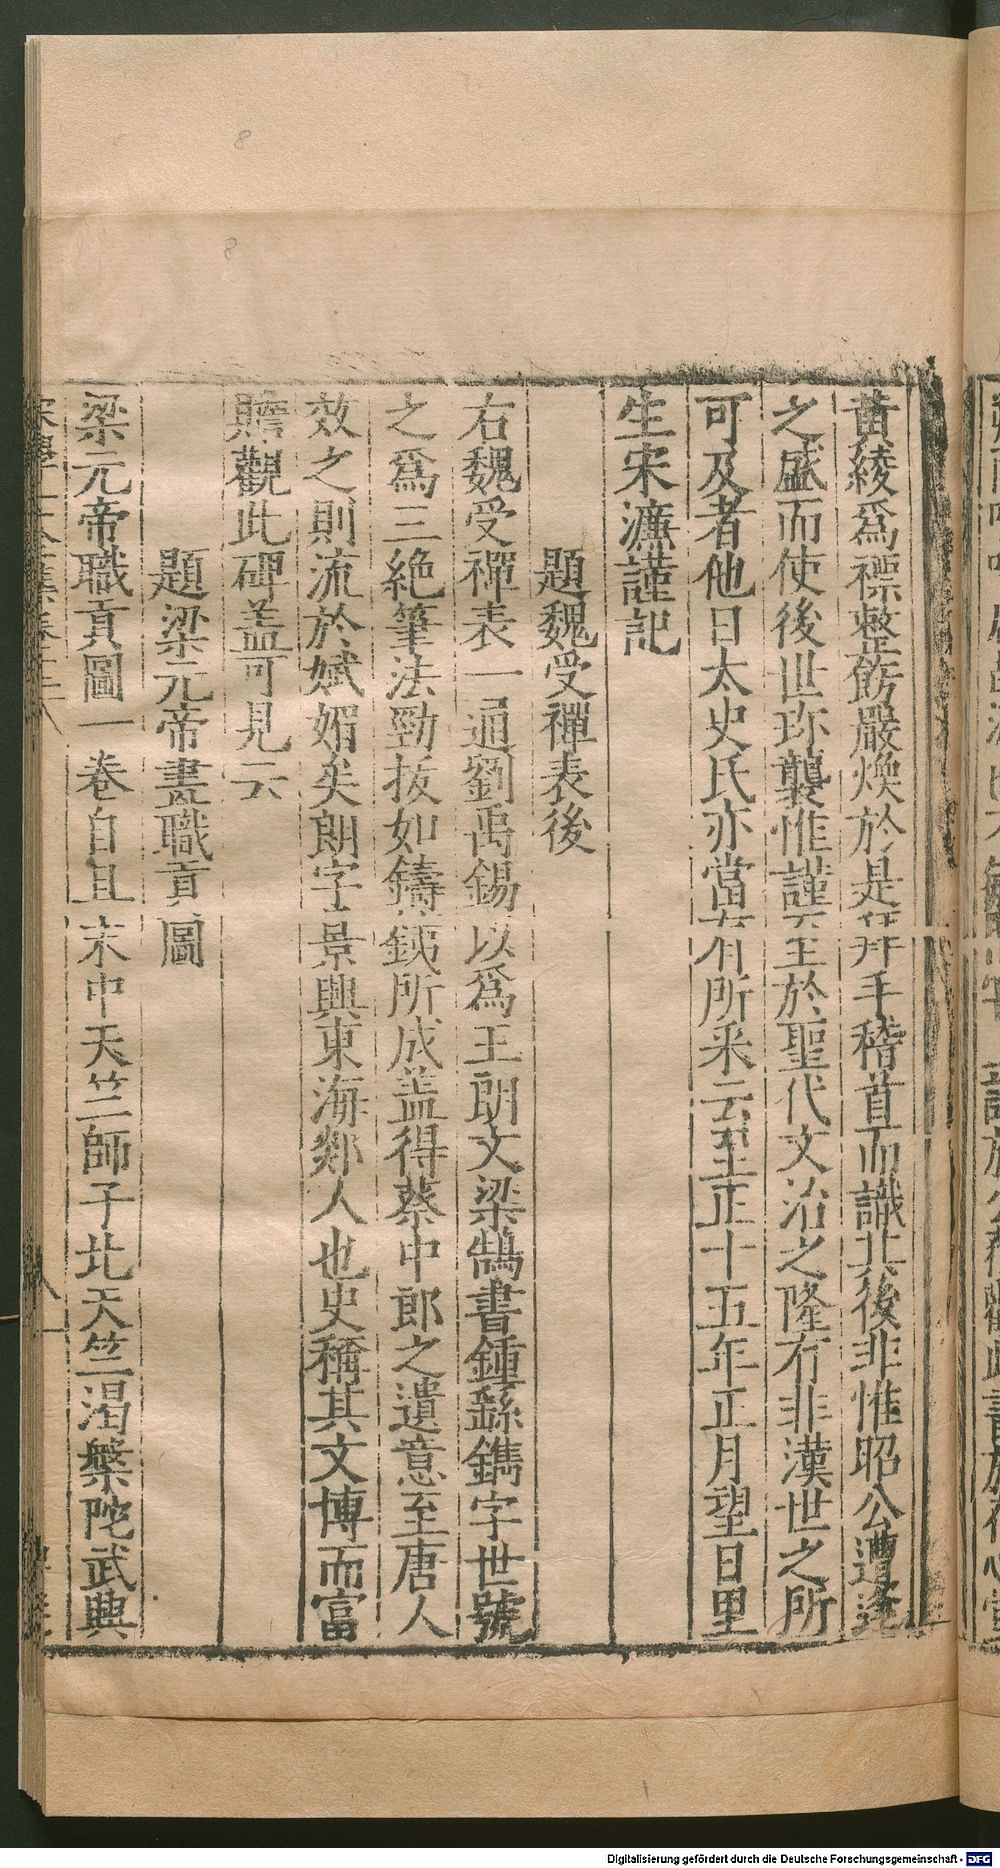 黃綾爲褾整飭嚴煥於是拜手稽首而識其後非惟昭公遭逢
之盛而使後世珎襲惟謹至於聖代文治之隆有非漢世之所
可及者他日太史氏亦當有所釆云至正十五年正月望日里
生宋濂謹記
題魏受禪表後
右魏受禪表一通劉禹錫以爲王朗文梁鵠書鍾繇鐫字世號
之爲三絶筆法勁拔如鑄鐵所成盖得蔡中郎之遺意至唐人
效之則流於娬媚矣朗字景興東海郯人也史稱其文博而富
贍觀此碑盖可見云
題梁元帝畫職貢圖
梁元帝職貢圖一卷自且末中天竺師子北天竺渴槃陀武興
8
8
Digitalisierung gefördert durch die Deutsche Forschungsgemeinschaft - DFG